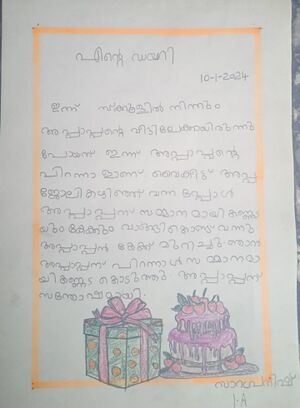 എന്റെ ഡയറി
10-1-2024
ഇന്ന് സ്കൂളിൽ നിന്നും
അപ്പാപ്പന്റെ വീട്ടിലേക്കായിരുന്നു
പോയത് ഇന്ന് അപ്പാപ്പന്റെ
പിറന്നാളാണ്. വൈകീട്ട് അപ്പ
ജോലികഴിഞ്ഞ് വന്നപ്പോൾ
അപ്പാപ്പന് സമ്മാനമായി കണ്ണട
യും കേക്കും വാങ്ങി കൊണ്ട് വന്നു
അപ്പാപ്പൻ കേക്ക് മുറിച്ചു ഞാൻ
അപ്പാപ്പന് പിറന്നാൾ സമ്മാനമാ
യി കണ്ണട കൊടുത്തു. അപ്പാപ്പന്
സന്തോഷമായി.
1.A